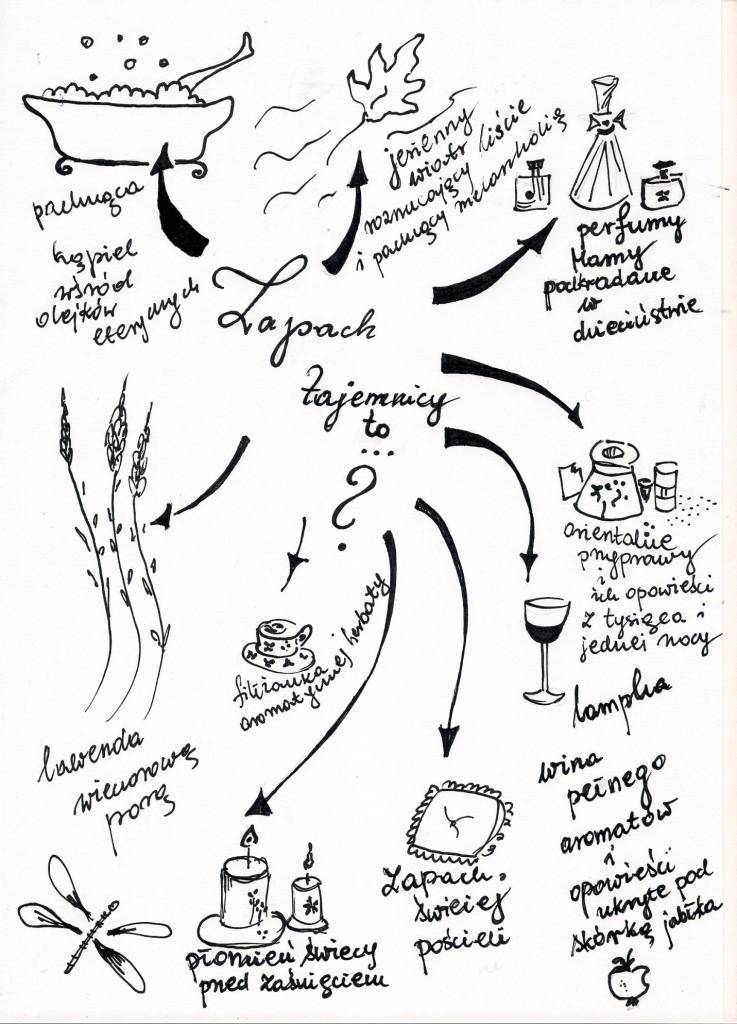 Zapach
tajemnicy
to
...
?
pachnąca
kąpiel
wśród
olejków
eterycznych
jesienny
wiatr
rozrzucający liście
i pachnący melancholią
perfumy
Mamy
podkradane
w
dzieciństwie
orientalne
przyprawy
i
ich opowieści
z tysiąca i
jednej nocy
lampka
wina
pełnego
aromatów
i
opowieści
ukryte pod
skórką jabłka
zapach
świeżej
pościeli
płomień świecy
przed zaśnięciem
filiżanka
aromatycznej herbaty
lawenda
wieczorową
porą